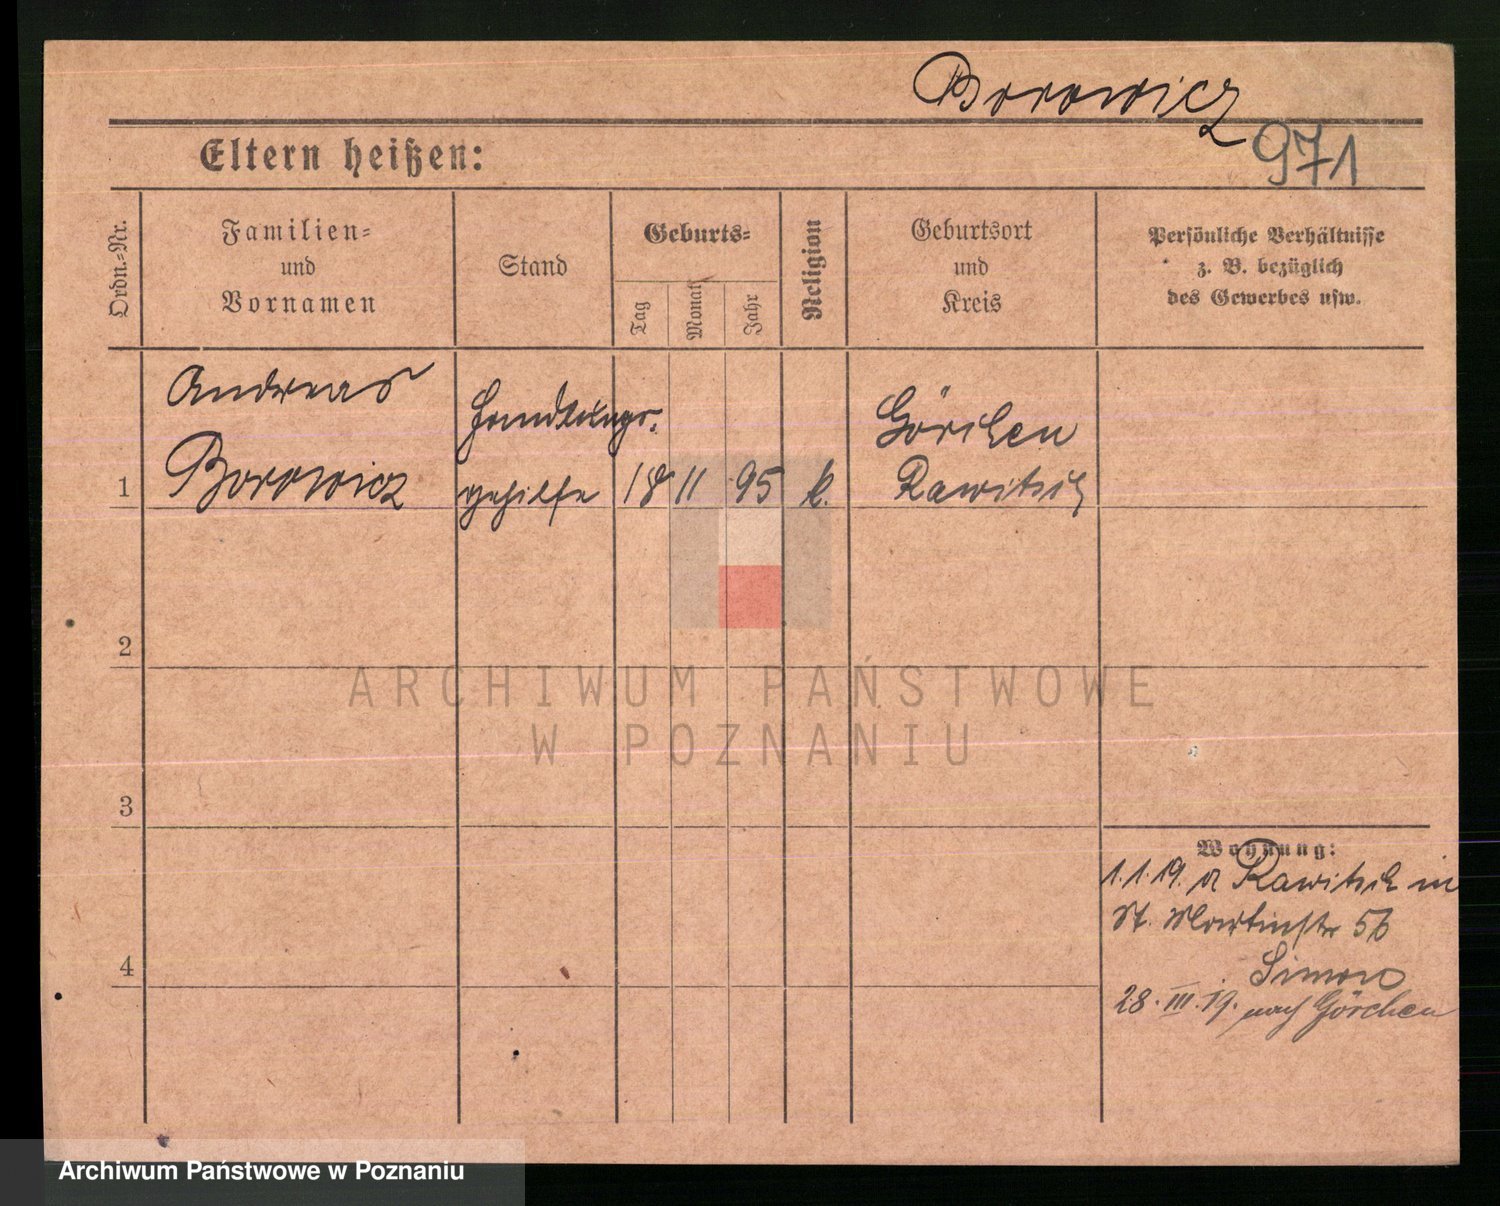 Borowicz
971
Eltern heißen:
Ordn.=Nr.
Familien=
und
Vornamen
Stand
Geburts=
Tag
Monat
Jahr
Religion
Geburtsort
und
Kreis
Persönliche Verhältnisse
z. B. bezüglich
des Gewerbes usw.
Andreas
Borowicz
Handlungs-
gehilfe
18 11 95 k.
Görchen
Rawitsch
1
2
3
4
Wohnung:
1.1.19. a Rawitsch in
St. Martinstr 56
Simon
28.III.19. nach Görchen
ARCHIWUM PAŃSTWOWE
W POZNANIU
Archiwum Państwowe w Poznaniu